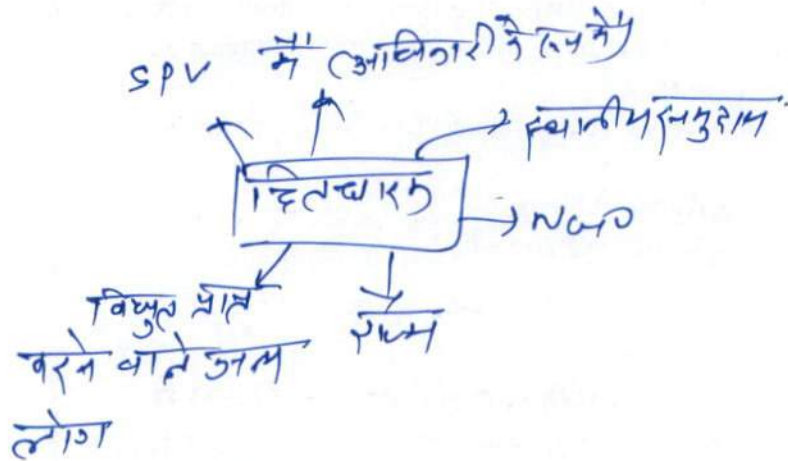 SPV
में (अधिकारी के रूप में)
स्थानीय समुदाय
हितधारक
NGO
राज्य
विद्युत प्राप्त
करने वाले अन्य
लोग